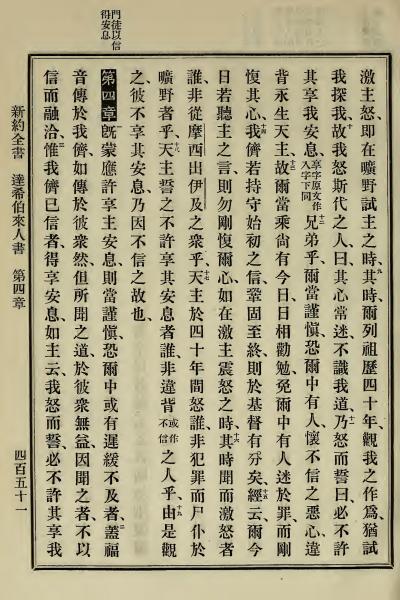 門徒以信
得安息
激主怒、即在曠野試主之時、九其時爾列祖歷四十年、觀我之作爲、猶試
我探我、十故我怒斯代之人、曰、其心常迷、不識我道、十一乃怒而誓曰、必不許
其享我安息、享字原文作入字下同十二兄弟乎、爾當謹愼、恐爾中有人、懷不信之惡心、違
背永生天主、十三故爾當乘尙有今日、日相勸勉、免爾中有人迷於罪而剛
愎其心、十四我儕若持守始初之信、鞏固至終、則於基督有分矣、十五經云、爾今
日若聽主之言、則勿剛愎爾心、如在激主震怒之時、十六其時聞而激怒者
誰、非從摩西出伊及之衆乎、十七天主於四十年間怒誰、非犯罪而尸仆於
曠野者乎、十八天主誓之不許享其安息者誰、非違背或作不信之人乎、十九由是觀
之、彼不享其安息、乃因不信之故也、
第四章 旣蒙應許享主安息、則當謹愼、恐爾中或有遲緩不及者、二蓋福
音傳於我儕、如傳於彼衆、然但所聞之道、於彼衆無益、因聞之者不以
信而融洽、三惟我儕已信者、得享安息、如主云、我怒而誓、必不許其享我
新約全書 達希伯來人書 第四章 四百五十一